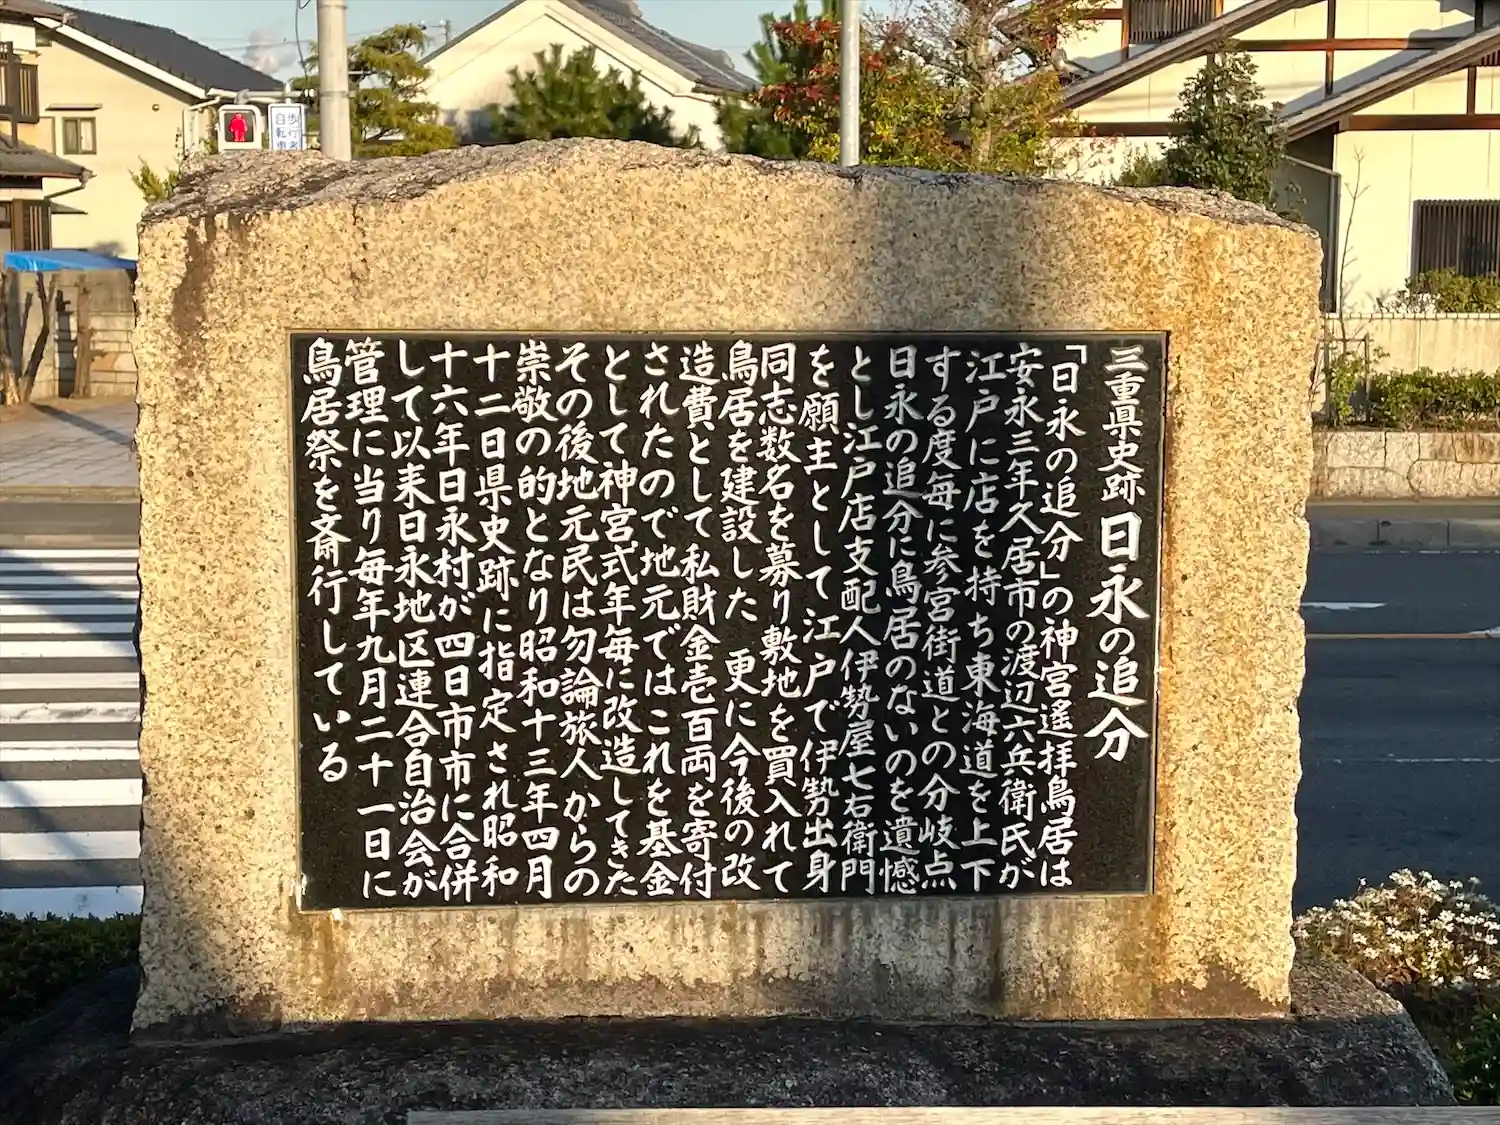 三重県史跡 日永の追分
「日永の追分」の神宮遙拝鳥居は
安永三年久居市の渡辺六兵衛氏が
江戸に店を持ち東海道を上下
する度毎に参宮街道との分岐点
日永の追分に鳥居のないのを遺憾
とし江戸店支配人伊勢屋七右衛門
を願主として江戸で伊勢出身
同志数名を募り敷地を買入れて
鳥居を建設した 更に今後の改
造費として私財金壱百両を寄付
されたので地元ではこれを基金
として神宮式年毎に改造してきた
その後地元民は勿論旅人からの
崇敬の的となり昭和十三年四月
十二日県史跡に指定され昭和
十六年日永村が四日市市に合併
して以来日永地区連合自治会が
管理に当り毎年九月二十一日に
鳥居祭を斎行している
自転車
歩行者